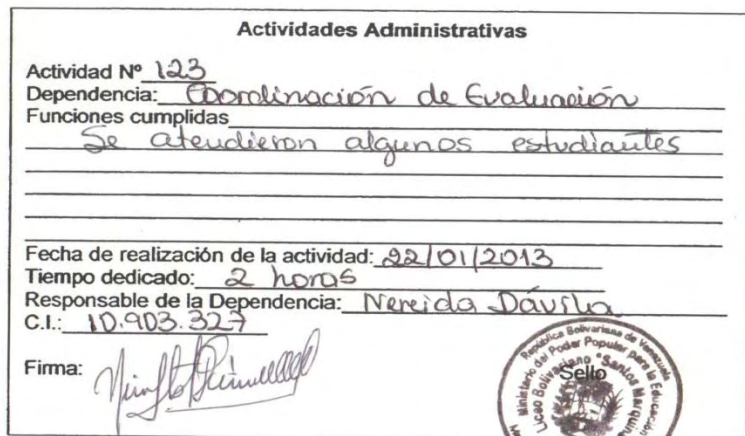 Actividades Administrativas
Actividad Nº 123
Dependencia: Coordinación de Evaluación
Funciones cumplidas
Se atendieron algunos estudiantes
Fecha de realización de la actividad: 22/01/2013
Tiempo dedicado: 2 horas
Responsable de la Dependencia: Nereida Dávila
C.I.: 10.903.327
Firma:
Sello
República Bolivariana de Venezuela
Ministerio del Poder Popular para la Educación
Liceo Bolivariano "Santos Marquina